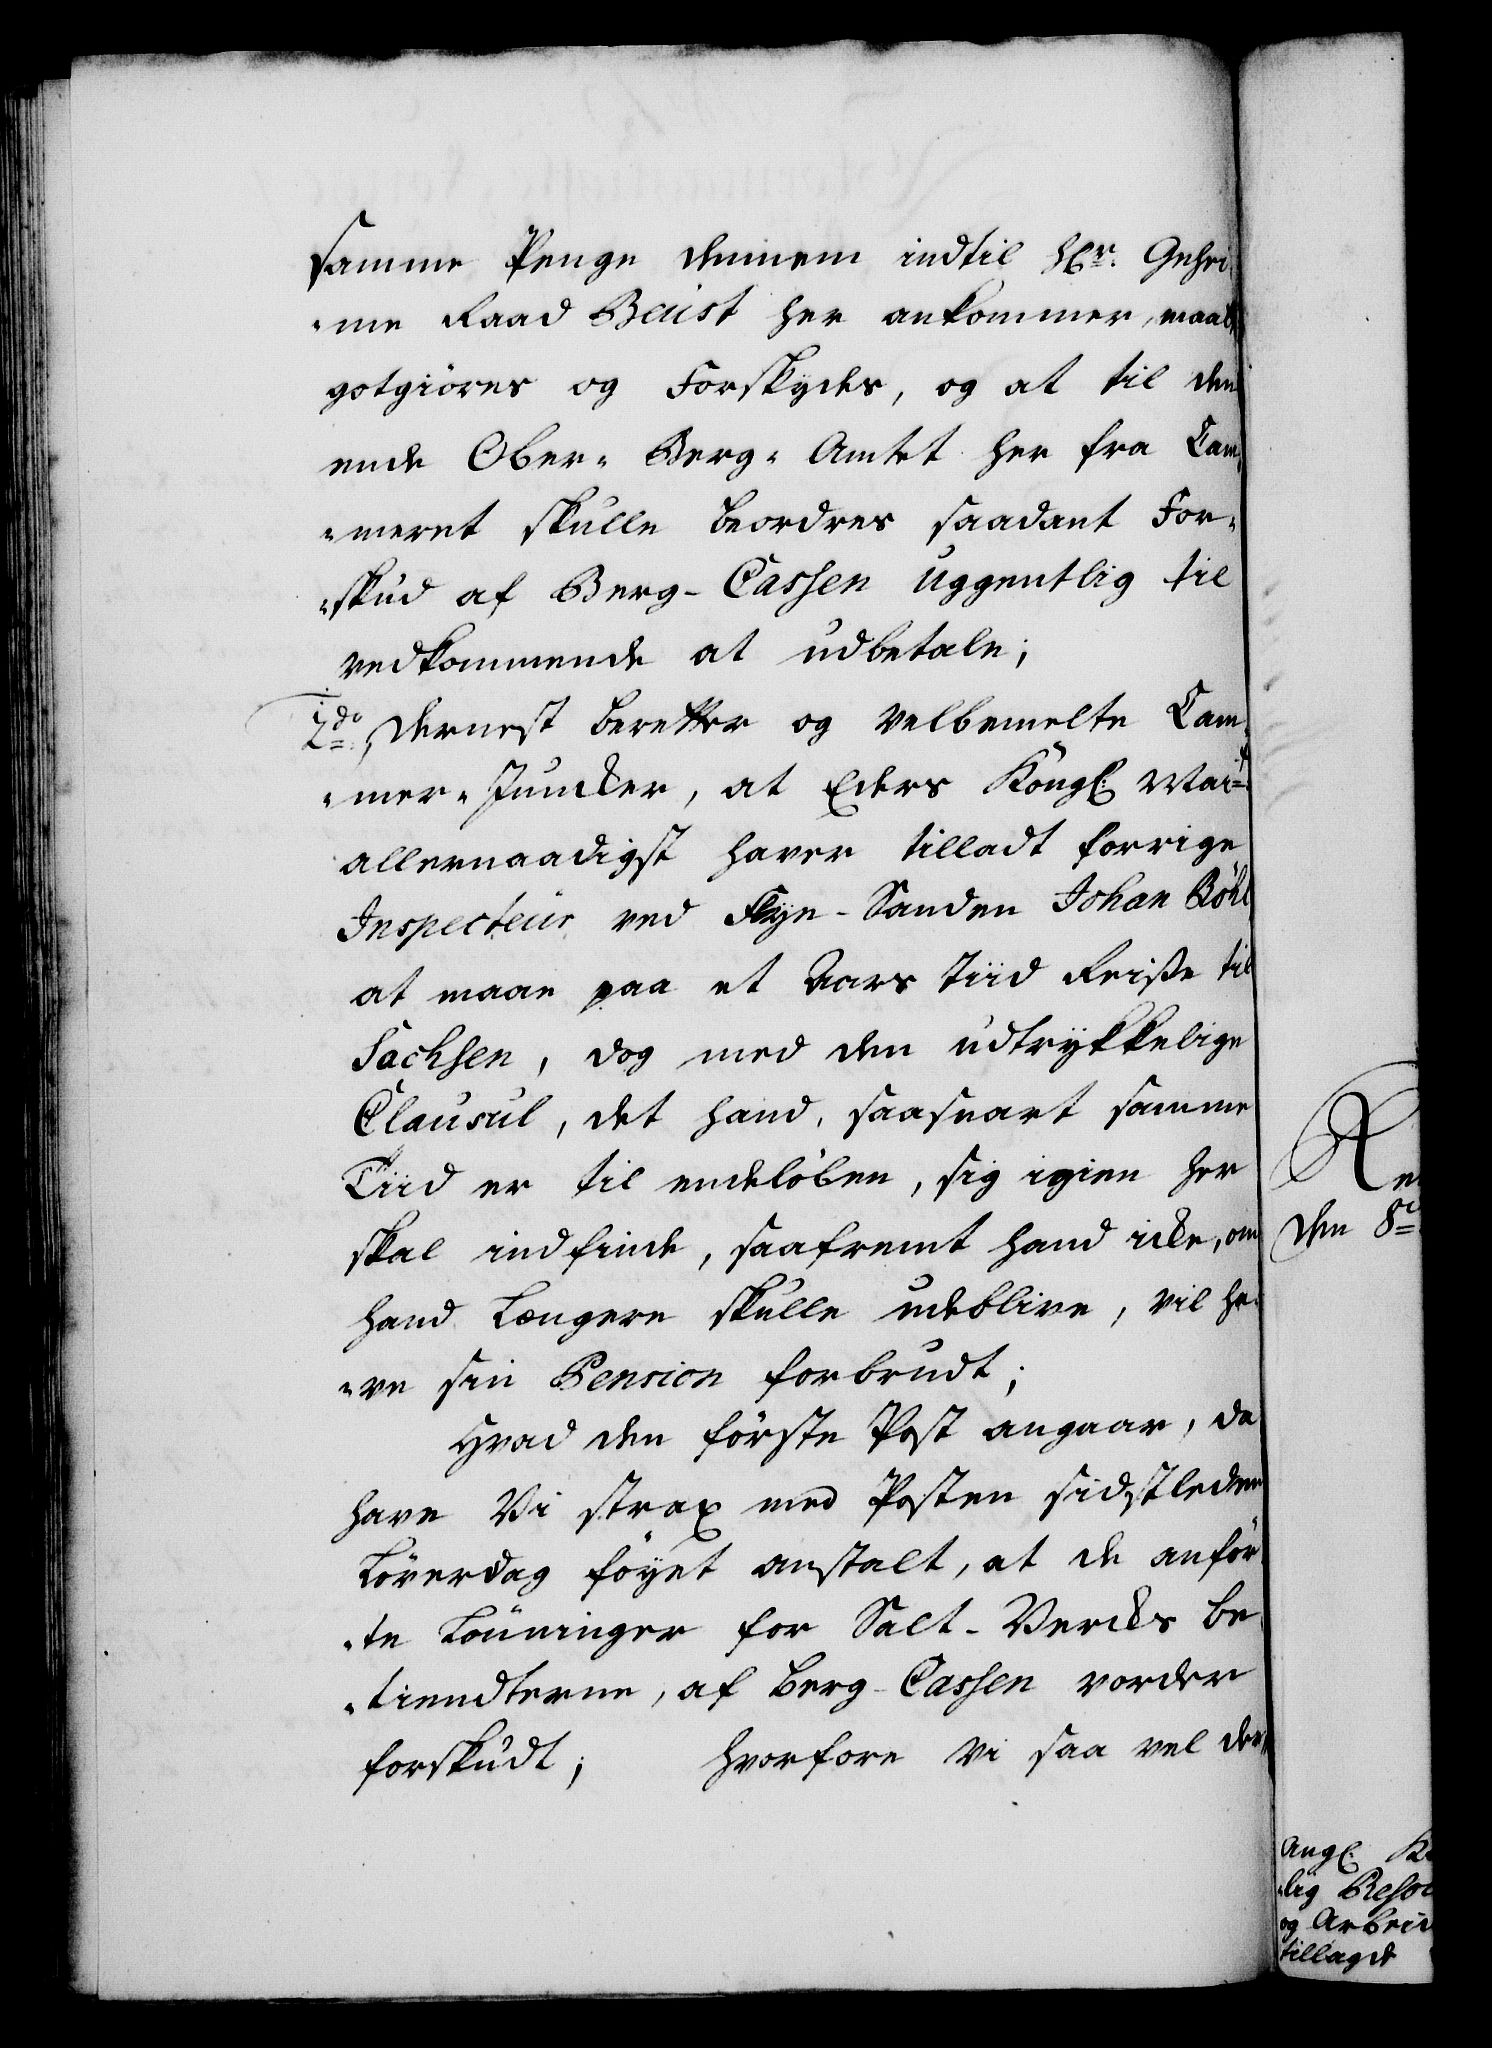 samme Penge dennem indtil Hr. Gehei
-me Raad Beust her ankommer, maatte
gotgiöres og Forskydes, og at til den
ende Ober- Berg- Amtet her fra Cam
-meret skulle beordres saadant For-
-skud af Berg-Cassen Uggentlig til
vedkommende at udbetale;
2do. Dernest beretter og Velbemelte Cam
-mer-Juncker, at Eders Köngl: Mait
allernaadigst haver tilladt forrige
Inspecteur ved Skye-Sanden Johan Böhl
at maae paa et Aars Tiid Reiße til
Sachsen, dog med den udtrykkelige
Clausul, det hand, saasnart samme
Tiid er til endelöben, sig igien her
skal indfinde, saafremt hand icke, om
hand Længere skulle udeblive, vil ha-
-ve sin Pension forbrudt;
Hvad den förste Post angaar, da
have Vi strax med Posten sidstleden
Löverdag föyet anstalt, at de anför
-te Lönninger for Salt-Vercks be
-tiendterne, af Berg-Cassen vorder
forskudt; Hvorfore Vi saa vel der
Re
den 8
Angl: K
-lig Resol
og Arbeid
tillagde